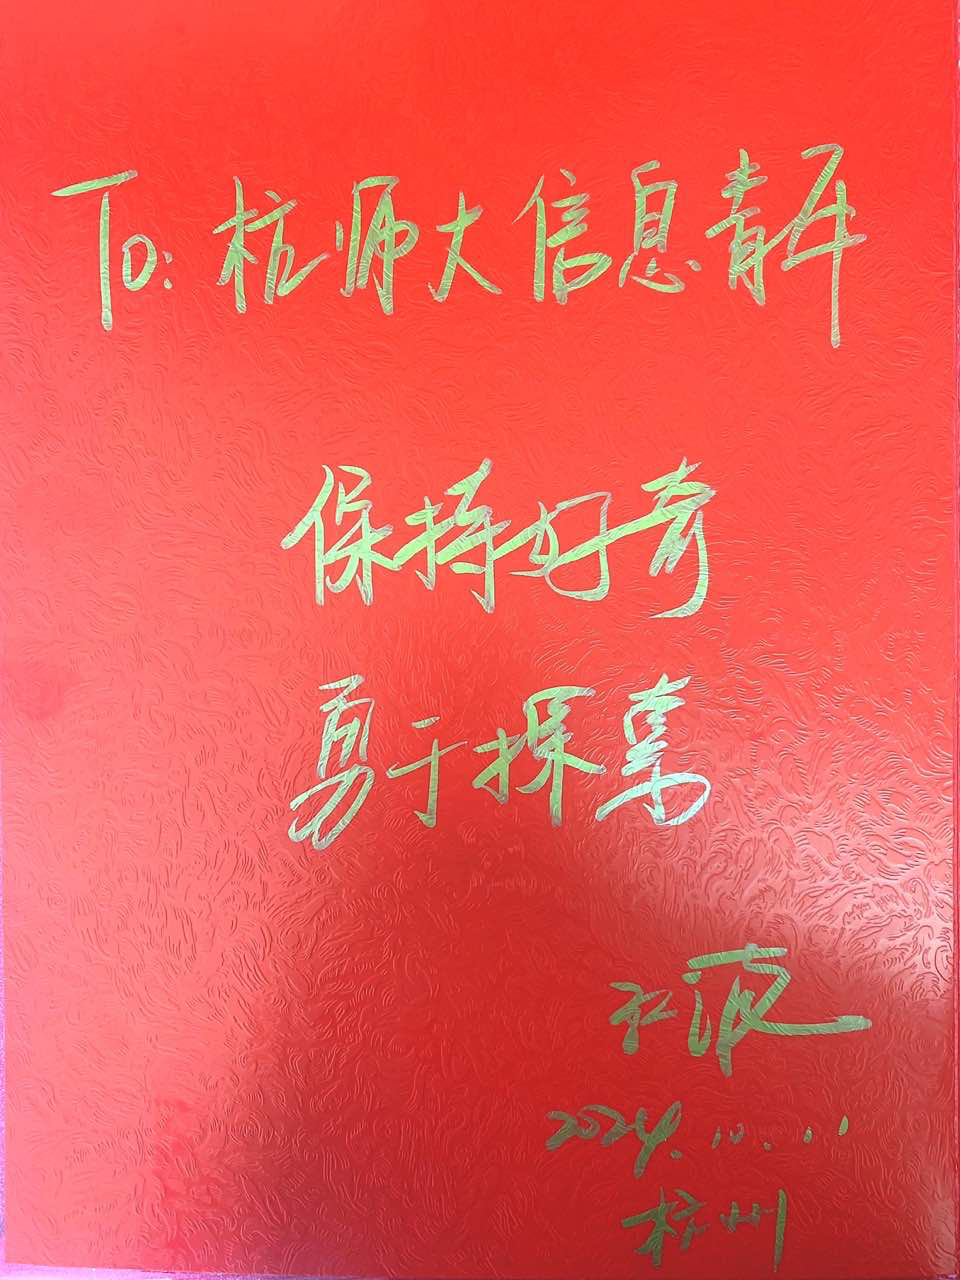 To: 杭师大信息青年
保持好奇
勇于探索
2024.10.11
杭州